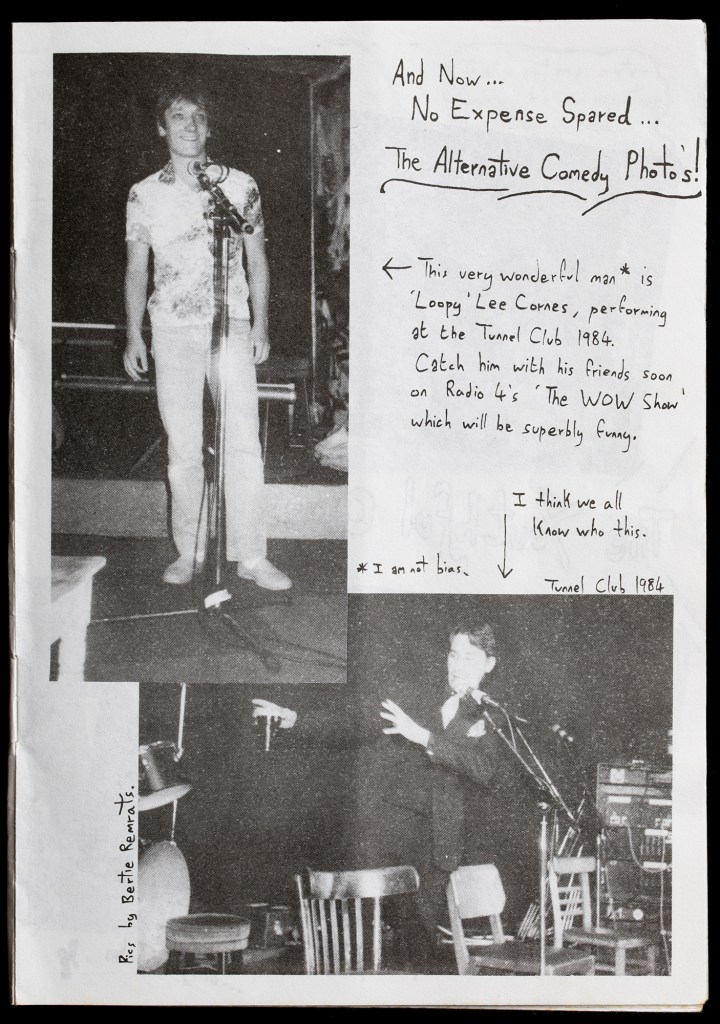 And Now...
No Expense Spared...
The Alternative Comedy Photo's!
← This very wonderful man* is
'Loopy' Lee Cornes, performing
at the Tunnel Club 1984.
Catch him with his friends soon
on Radio 4's 'The WOW Show'
which will be superbly funny.
I think we all
know who this.
* I am not bias.
Tunnel Club 1984
Pics by Bertie Remrats.